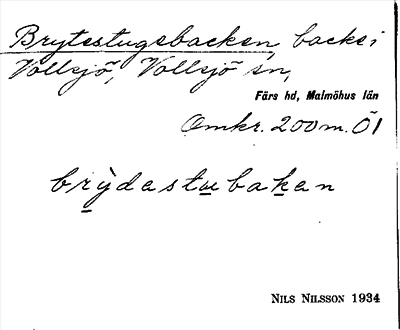 Brytestugebacken, backe i
Vollsjö, Vollsjö sn,
Färs hd, Malmöhus län
Omkr. 200 m. Öl
brỳdastuebakan
NILS NILSSON 1934